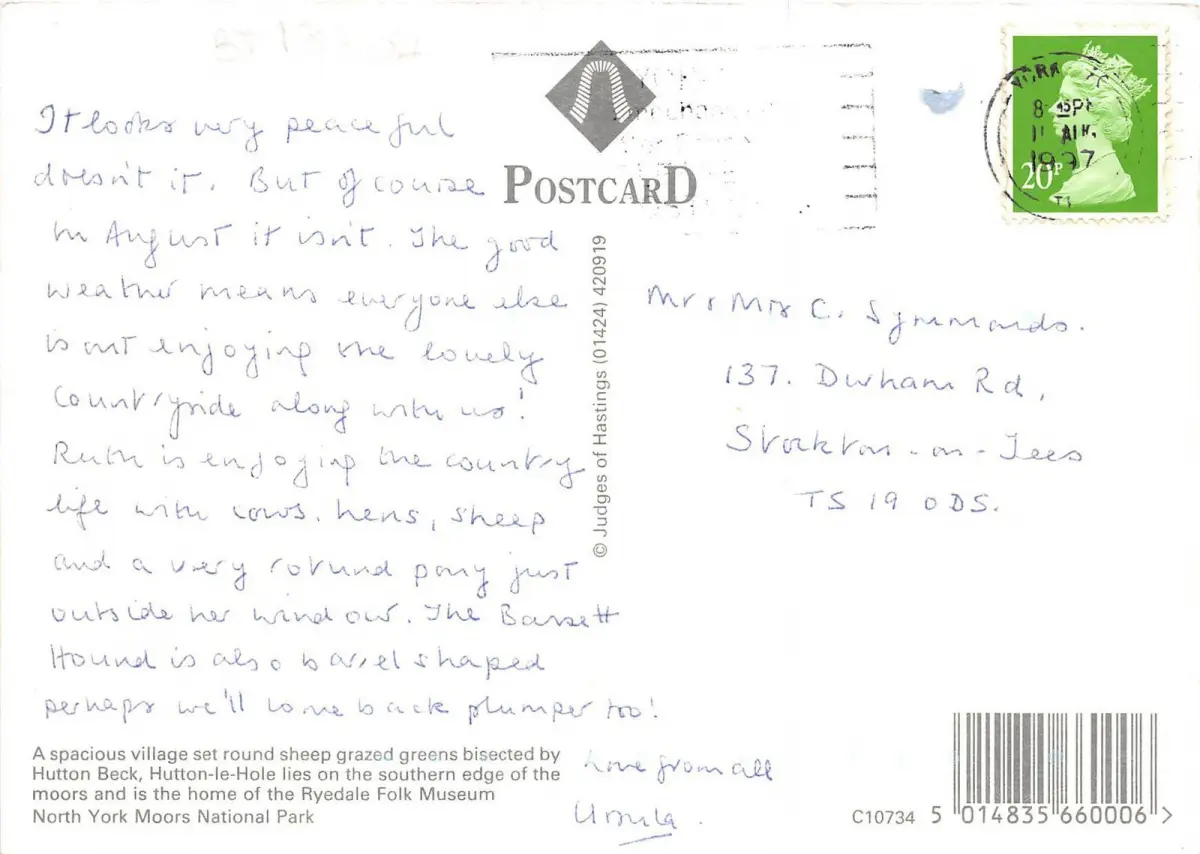 It looks very peaceful
doesn't it. But of course
in August it isn't. The good
weather means everyone else
is out enjoying the lovely
countryside along with us!
Ruth is enjoying the country
life with cows, hens, sheep
and a very rotund pony just
outside her window. The Bassett
Hound is also barrel shaped
perhaps we'll come back plumper too!
Love from all
Ursula.
A spacious village set round sheep grazed greens bisected by
Hutton Beck, Hutton-le-Hole lies on the southern edge of the
moors and is the home of the Ryedale Folk Museum
North York Moors National Park
POSTCARD
© Judges of Hastings (01424) 420919
20P
1997
Mr & Mrs C. Symmonds.
137. Durham Rd,
Stockton-on-Tees
TS 19 0DS.
C10734
5 014835 660006 >